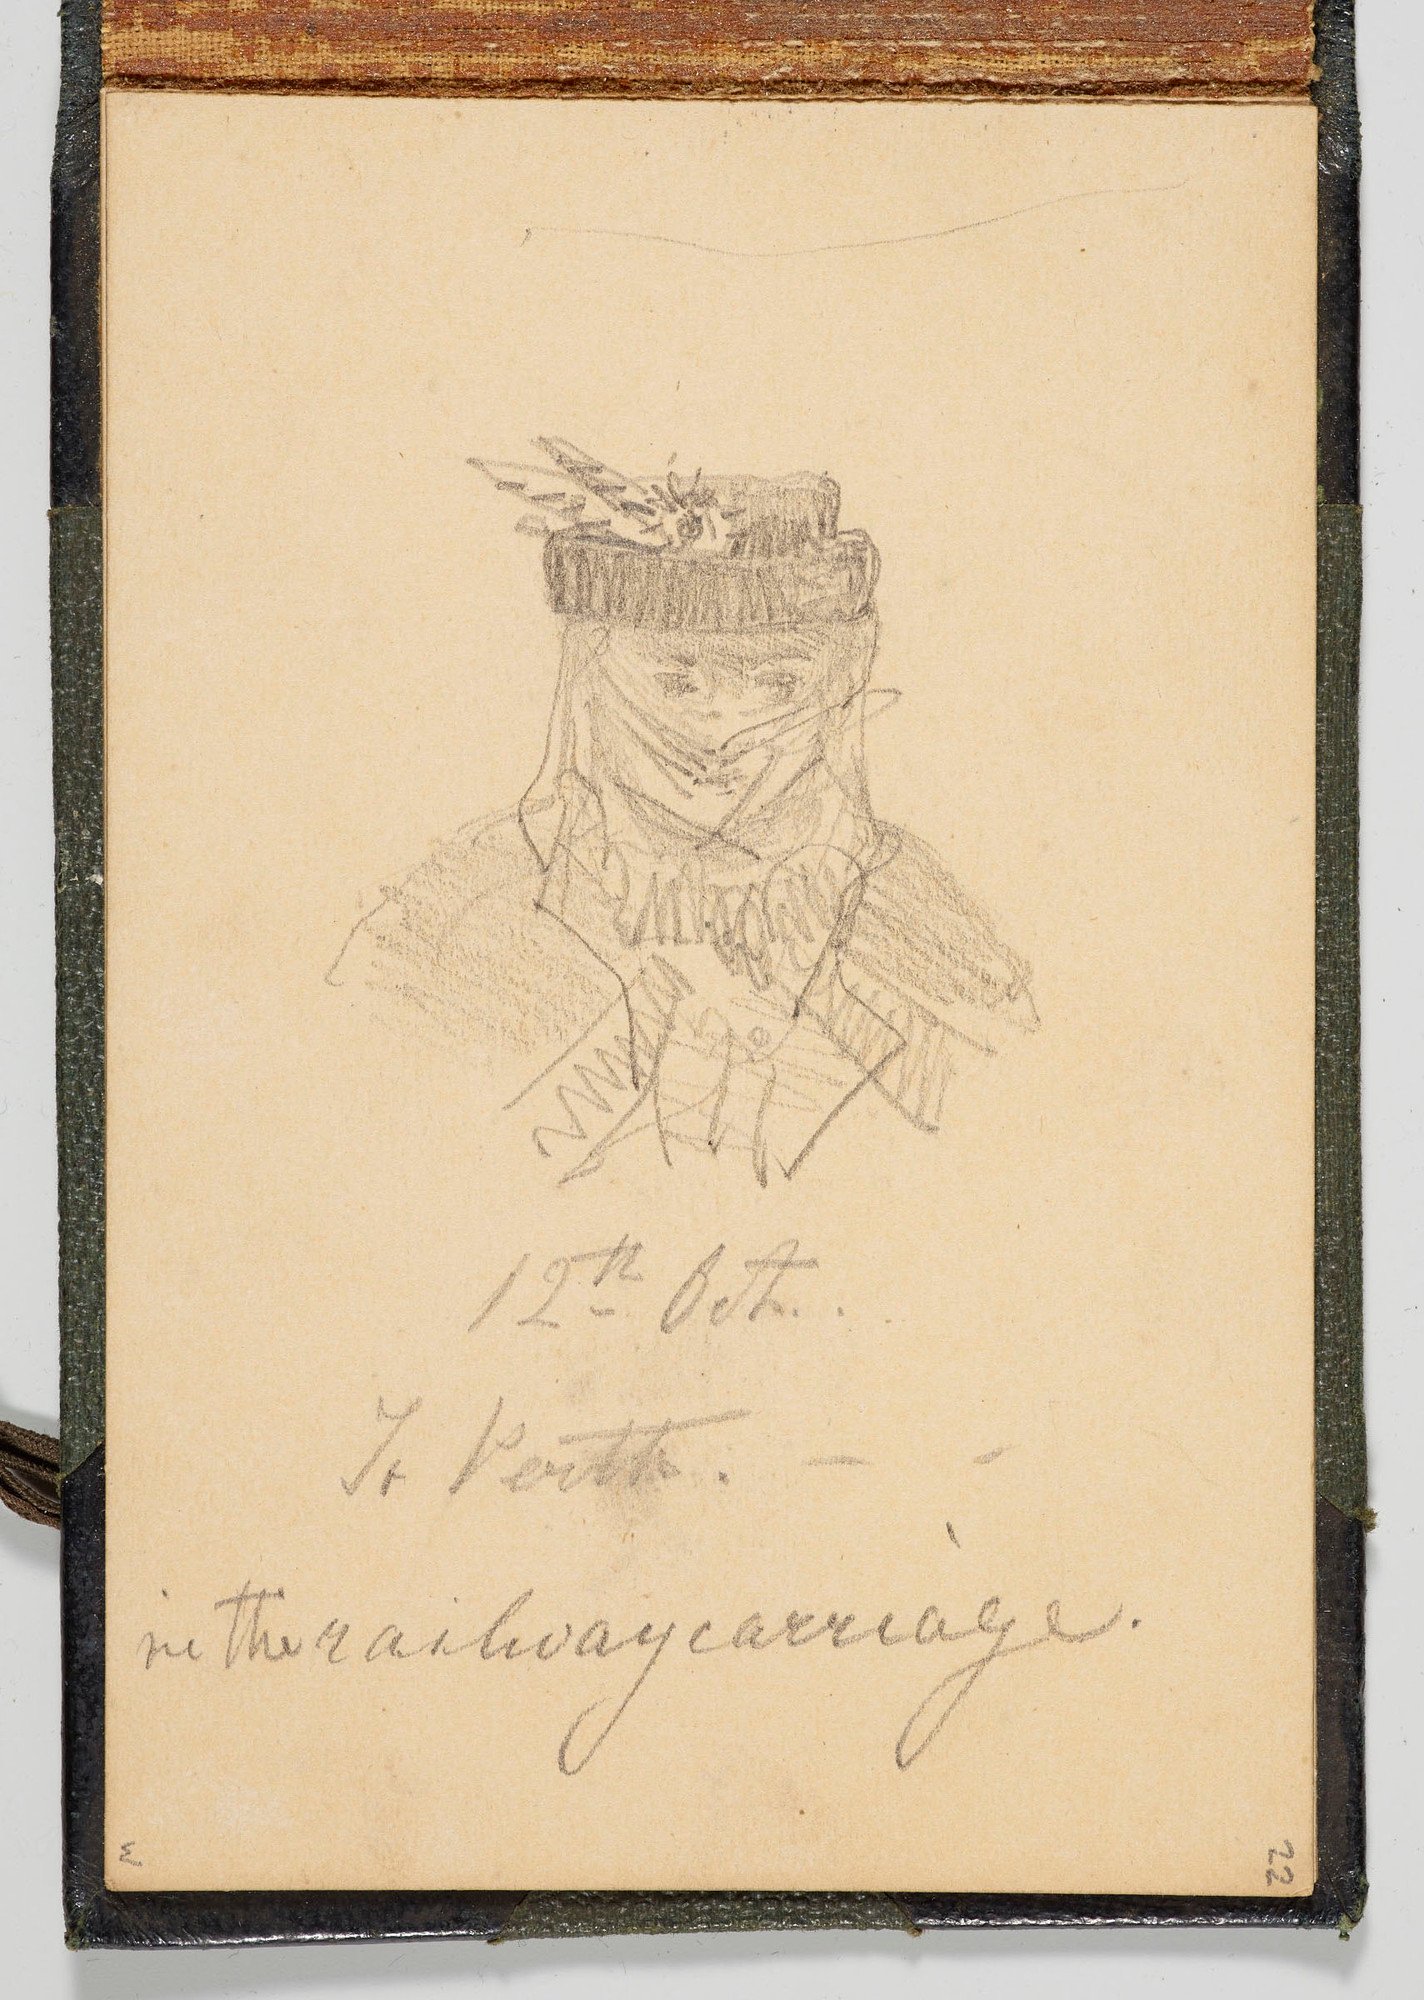 12th Oct.
To Perth. –  -
in the railway carriage.
3
22